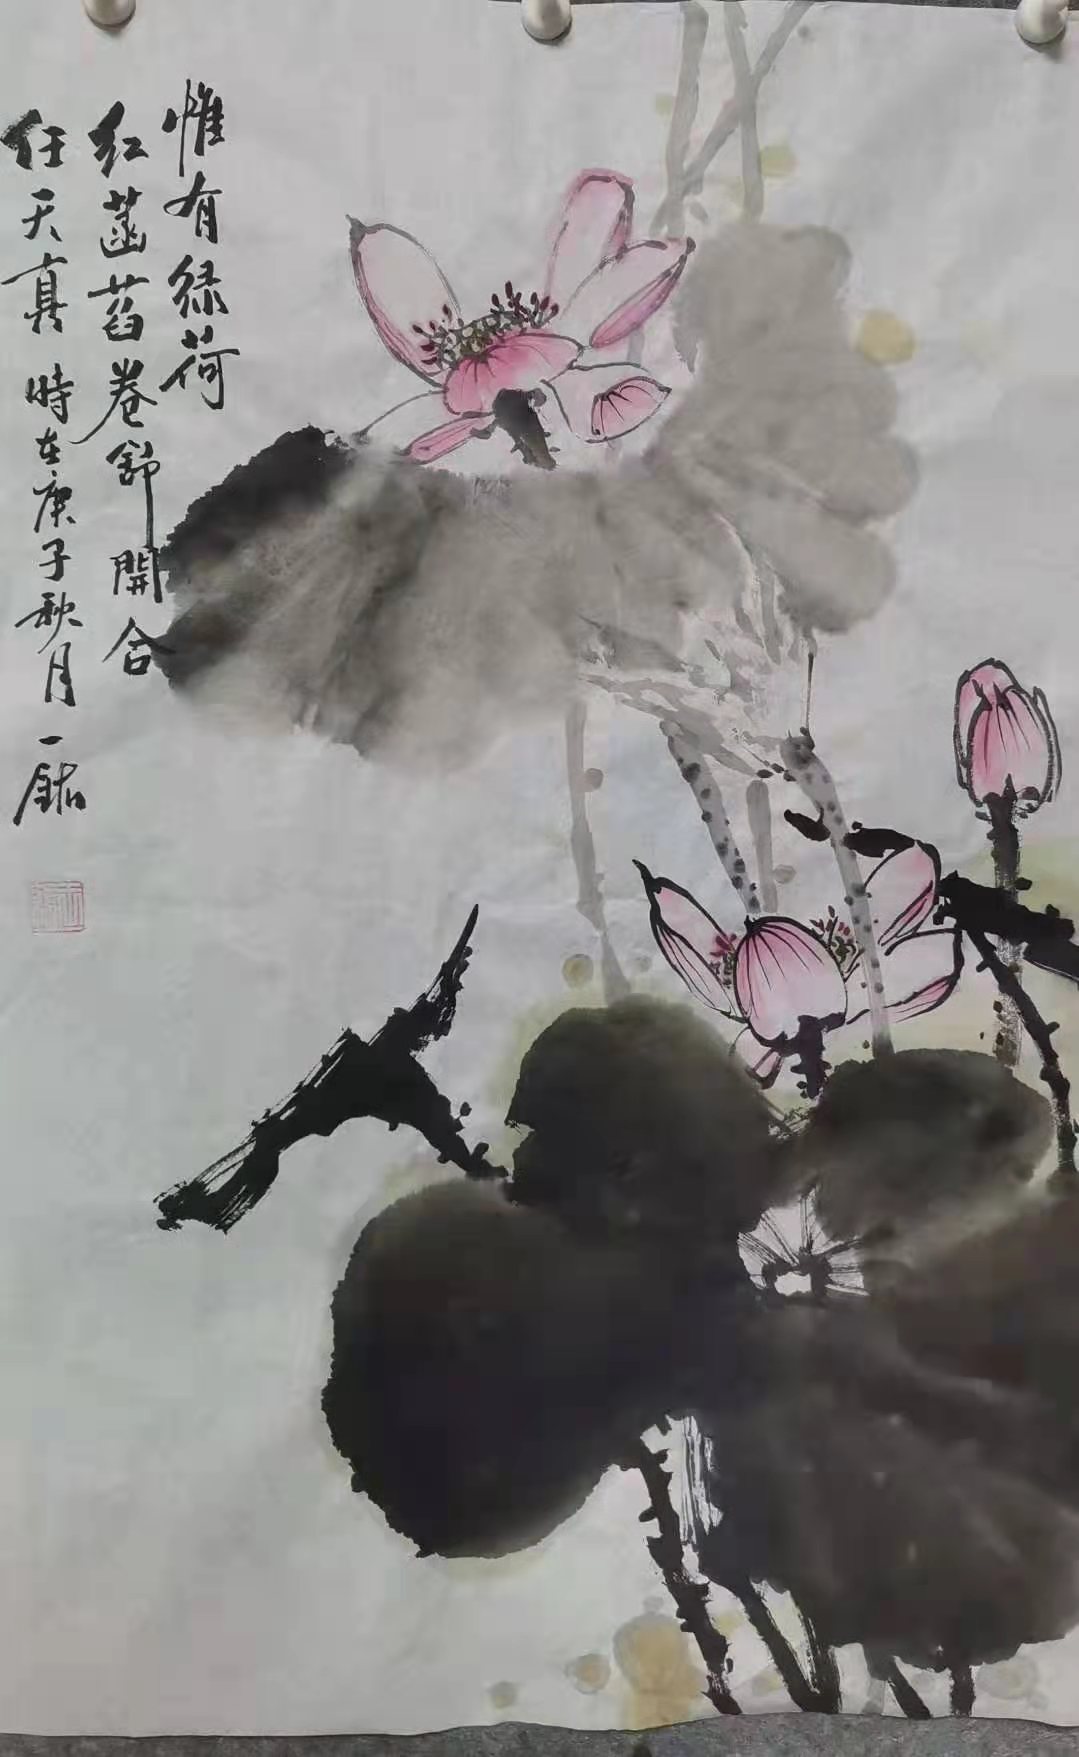 惟有绿荷
红菡萏卷舒開合
任天真 時在庚子秋月 一銘